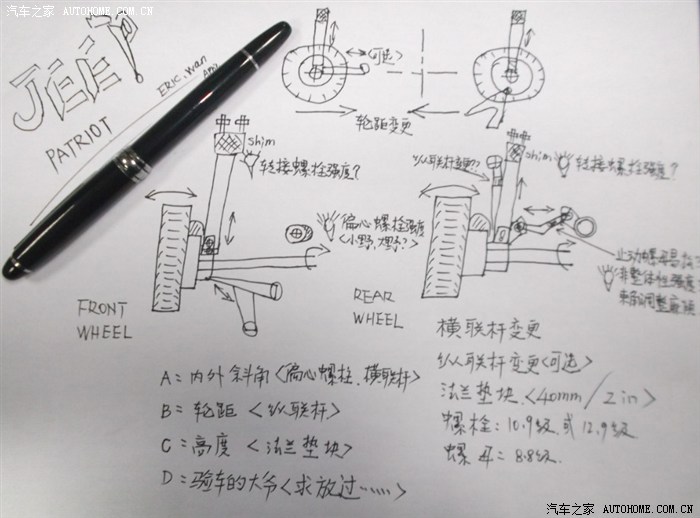 汽车之家 AUTOHOME.COM.CN
JEEP
PATRIOT
ERIC.Wan
<可选>
轮距变更
shim
链接螺栓强度?
偏心螺栓强度
<小野,大野?>
FRONT
WHEEL
纵联杆变更??
shim
链接螺栓强度?
非整体性强度
REAR
WHEEL
横联杆变更
纵联杆变更<可选>
法兰垫块<40mm/2in>
螺栓:10.9级或12.9级
螺母=8.8级.
A=内外斜角<偏心螺柱.横联杆>
B=轮距<纵联杆>
C=高度<法兰垫块>
D=验车的大爷<求放过……>
汽车之家 AUTOHOME.COM.CN